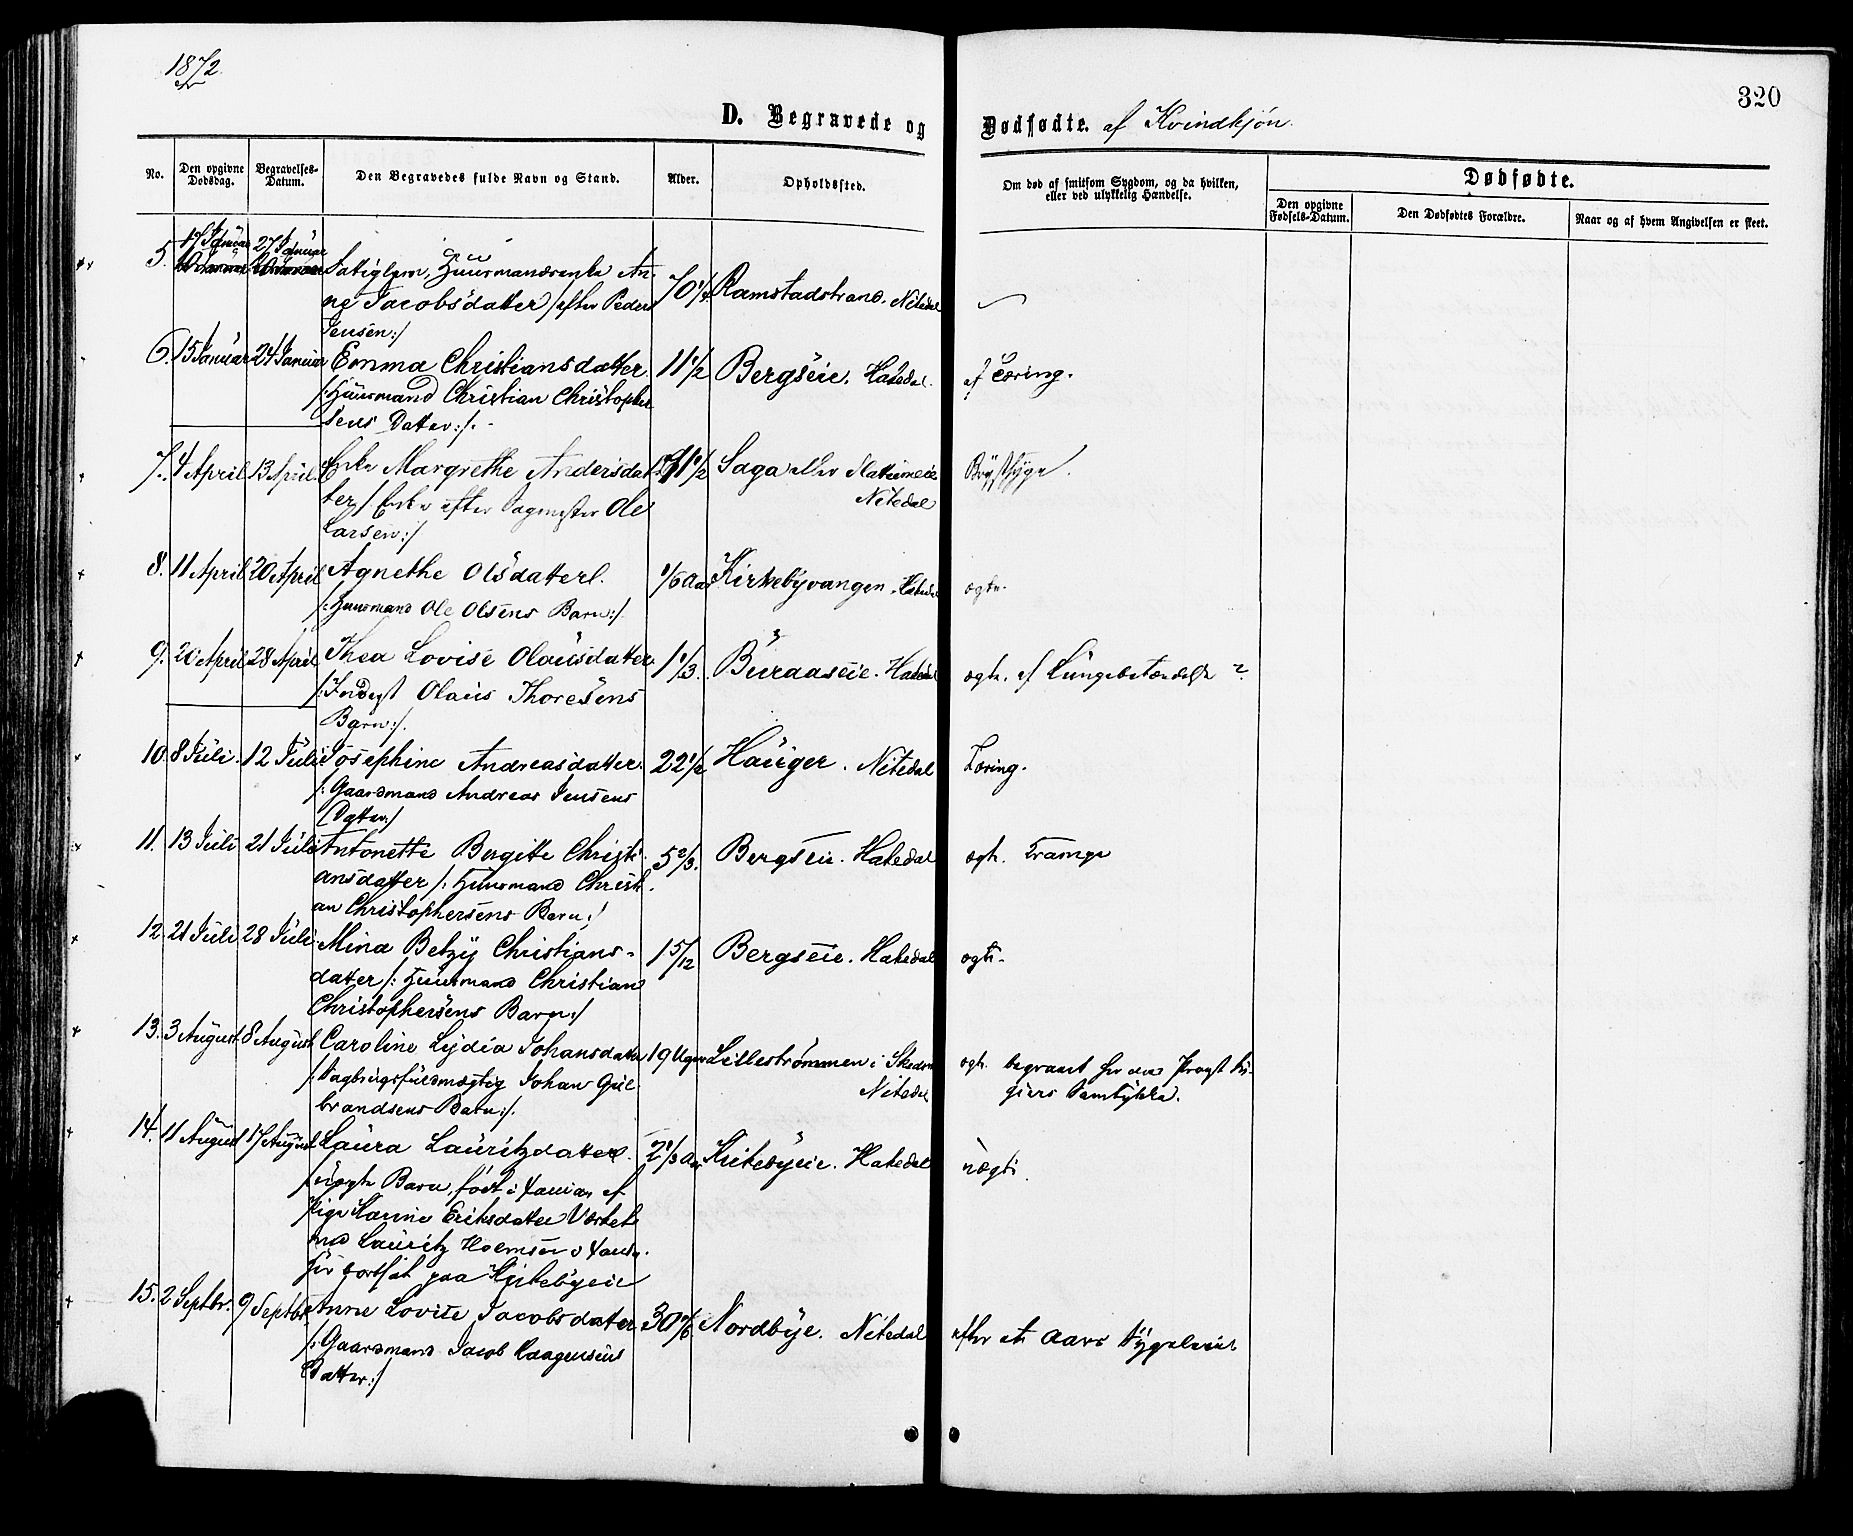 1872.
320
D. Begravede og Dødfødte. af Kvindkjön.
No.
Den opgivne Dødsdag.
Begravelses-Datum.
Den Begravedes fulde Navn og Stand.
Alder.
Opholdssted.
Om død af smitsom Sygdom, og da hvilken, eller ved ulykkelig Hændelse.
Dødfødte.
Den opgivne Fødsels-Datum.
Den Dødfødtes Forældre.
Naar og af hvem Angivelsen er skeet.
5. 17 Januar 27 Januar Fattiglem, Huusmandsenke An- 70 1/4 Ramstadstrand. Nitedal
ne Jacobsdatter /: efter Peder
Jensen:/
6. 15 Januar 24 Januar Emma Christiansdatter 11 1/2 Bergseie. Hakedal. af Tæring.
/: Huusmand Christian Christopher
sens Datter:/.
7. 4 April 13 April Enke Margrethe Andersdat 1/2 Saga eller Nitedal Brystsyge.
ter /: Enke efter Sagmester Ole
Larsen:/
8. 11 April 20 April Agnethe Olsdatter. 1/6 Aar Kirkebyvangen. Hakedal ægte.
/: Huusmand Ole Olsens Barn:/.
9. 20 April 28 April Thea Lovise Olausdatter 1 1/3. Buraaseie. Hakedal ægte. af Lungebetændelse?
/: Inderst Olaus Thoresens
Barn:/.
10. 8 Juli. 12 Juli Josephine Andreasdatter. 22 1/2 Hauger. Nitedal Tæring.
/: Gaardmand Andreas Jensens
Datter:/
11. 13 Juli 21 Juli Antonette Bergitte Christi 5 2/3. Bergseie. Hakedal ægte. Krampe
ansdatter /: Huusmand Christi
an Christophersens Barn:/
12. 21 Juli 28 Juli Mina Betzy Christians- 1 5/12 Bergseie. Hakedal ægte.
datter /: Huusmand Christian
Christophersens Barn:/
13. 3 August 8 August Caroline Lydia Johansdatter 19 Uger Lillestrømmen i Skedsmo ægte. begravet her med Provst
/: Sagbrugsfuldmægtig Johan Gul Nitedal Samtykke.
brandsens Barn:/.
14. 11 August 17 August Laura Lauritzdatter. 2 1/3 Aar Kirkebyeie. Hakedal uægte.
/: uægte Barn, født i af
Pige Karine Eriksdatter
med Lauritz Holmsen
bortsat paa Kirkebyeie
15. 2 Septbr. 9 Septbr. Anne Lovise Jacobsdatter 30 Nordbye. Nitedal efter et Aars Sygeleie
/: Gaardmand Jacob Haagensens
Datter:/